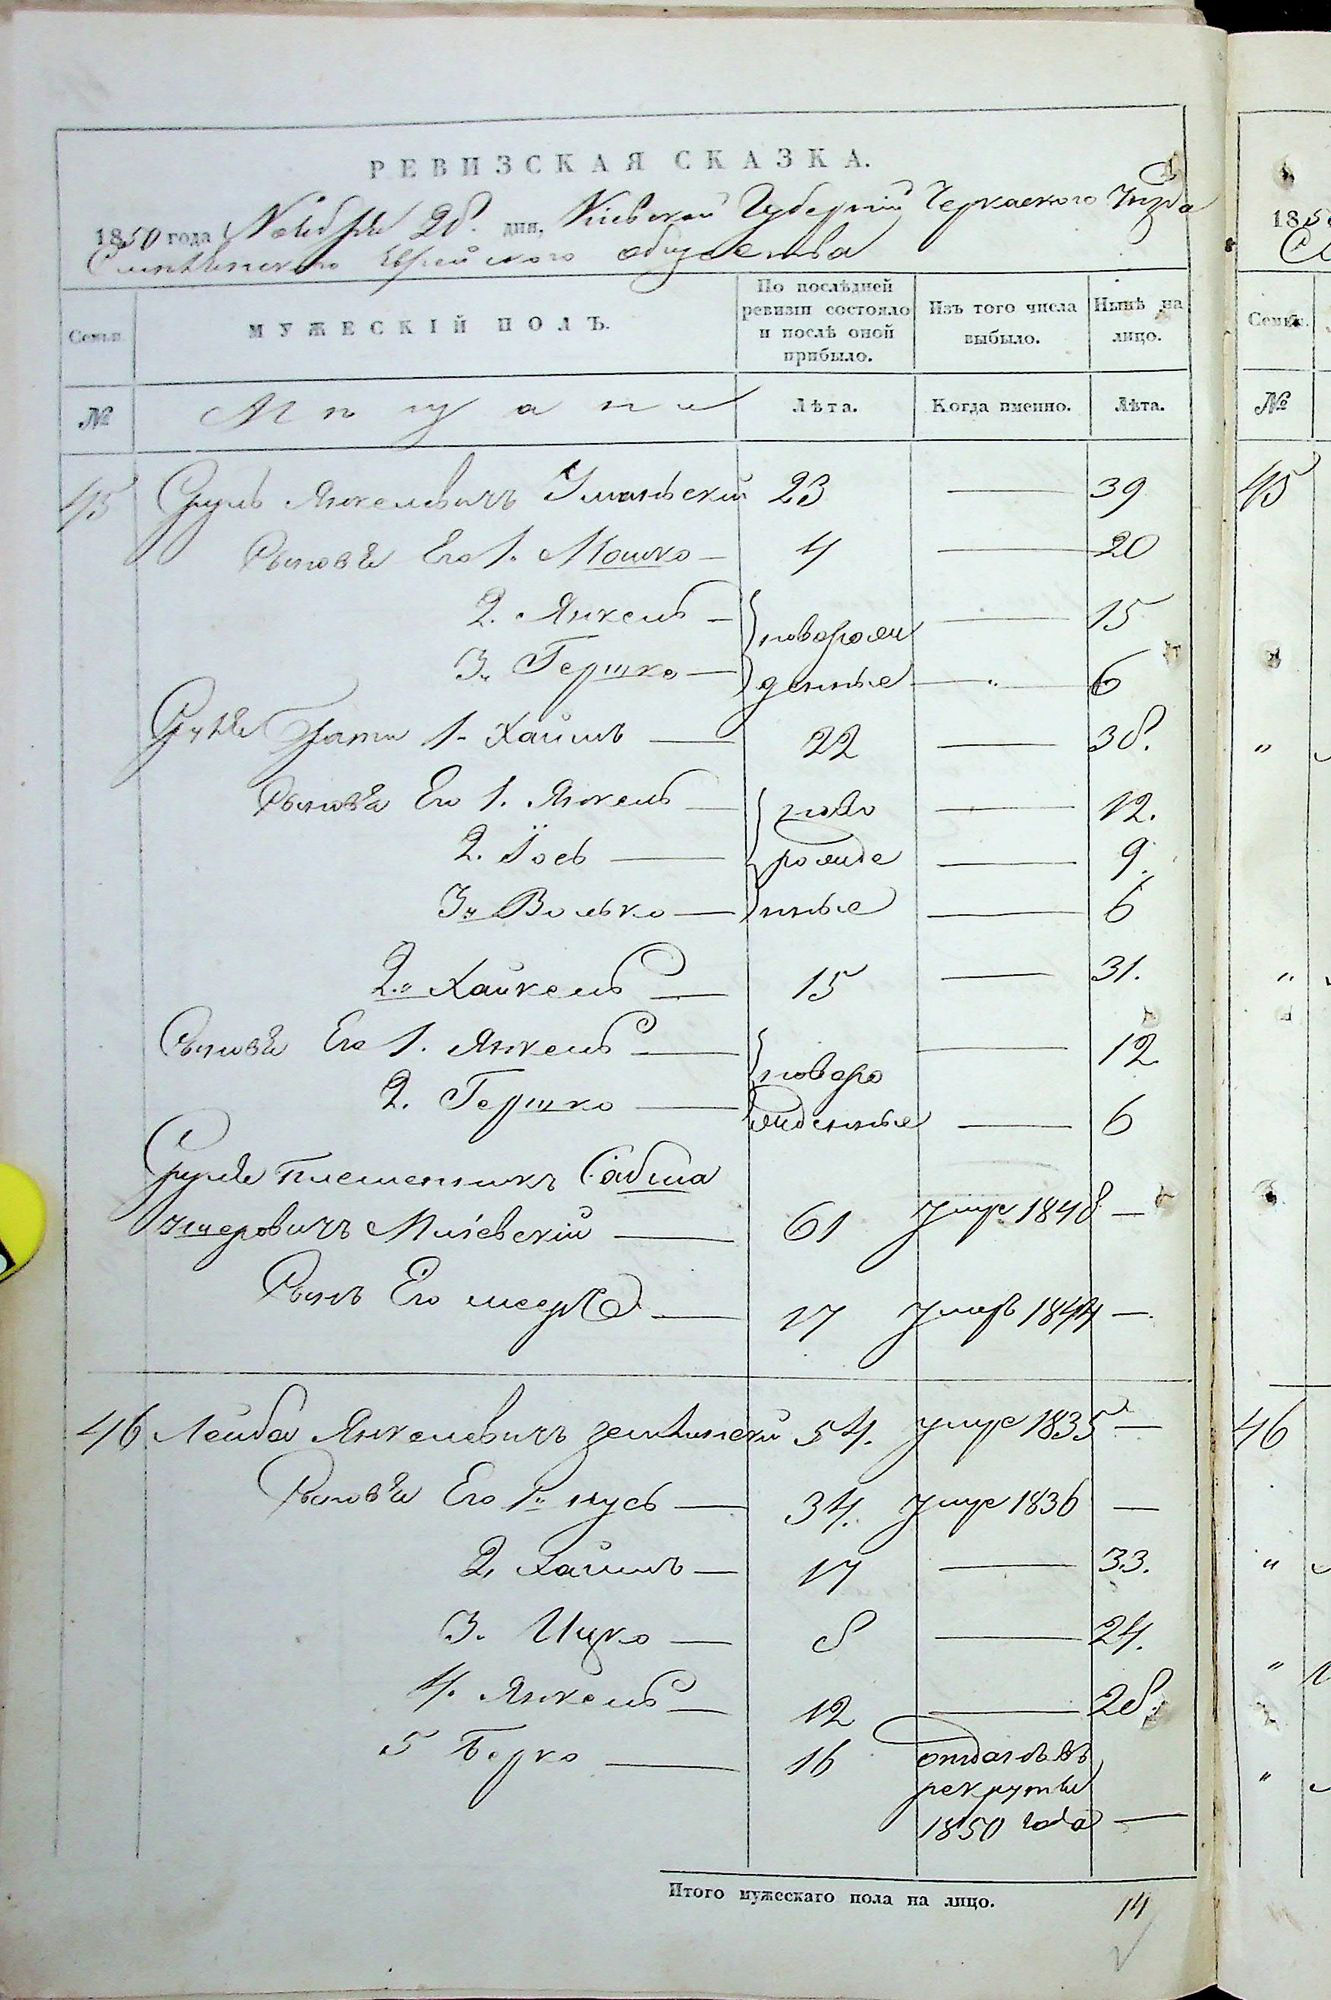 РЕВИЗСКАЯ СКАЗКА.
1850 года Ноября 28. дня, Кіевской Губерніи Черкаского Уѣзда
Смѣлянского Еврейского общества
Семьи. МУЖЕСКІЙ ПОЛЪ. По послѣдней ревизіи состояло и послѣ оной прибыло. Изъ того числа выбыло. Нынѣ на лицо.
№ Мѣщане Лѣта. Когда именно. Лѣта.
45 Сруль Янкелевичъ Уманьскій 23 — 39
Сыновья Его 1. Мошко — 4 — 20
2. Янкель — новорож — 15
3. Гершко — денные — 6
Сруля Браты 1. Хаимъ — 22 — 38.
Сыновья Его 1. Янкель — ново — 12.
2. Іось — рожде — 9.
3. Волько — нные — 6
2. Хайкель — 15 — 31.
Сыновья Его 1. Янкель — новоро — 12
2. Гершко — жденные — 6
Сруля племенникъ Сабша
Ушеровичъ Миніевскій — 61 умре 1848 —
Сынъ Его — 17 умеръ 1844 —
46 Лейба Янкелевичъ 54. умре 1835 —
Сыновья Его 1. Нусь — 34. умре 1836 —
2. Хаимъ — 17 — 33.
3. Ицко — 8 — 24.
4. Янкель — 12 — 28.
5 Берко — 16 отданъ въ
рекруты
1850 года —
Итого мужескаго пола на лицо. 14
1850
Семьи.
№
45
46